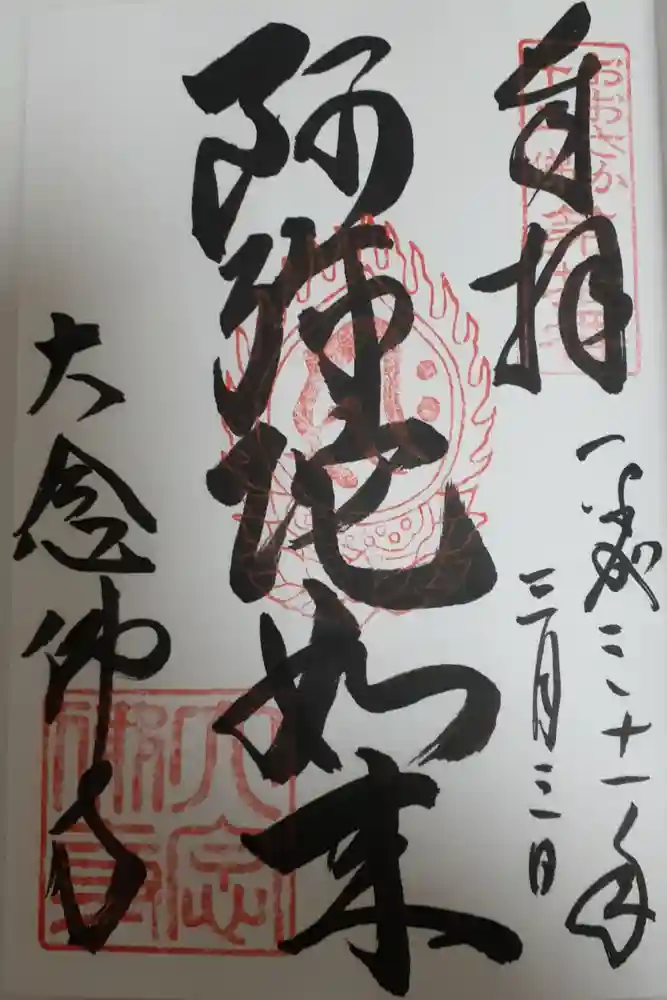 おおさか
奉拝
平成三十一年
三月三日
阿弥陀如来
大念佛寺
大念
佛寺